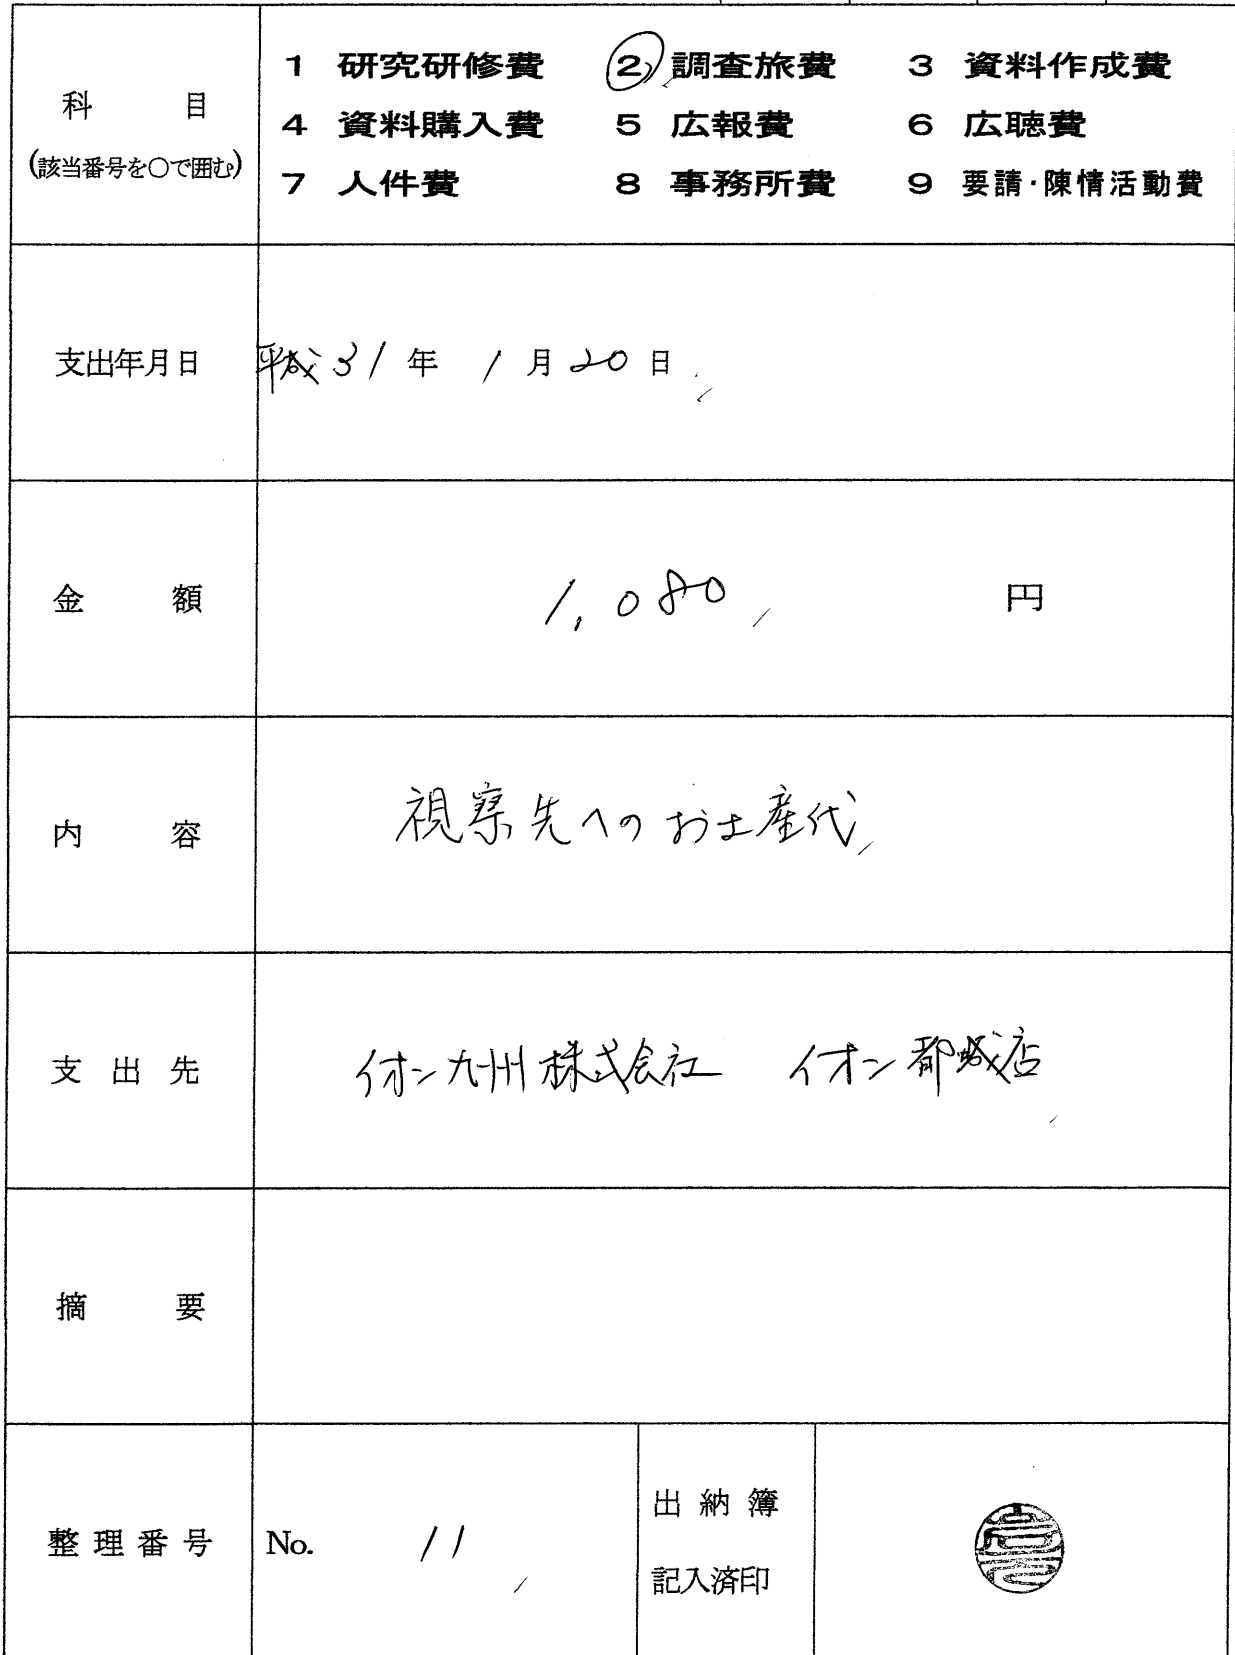 科目
(該当番号を○で囲む)
1 研究研修費 ② 調査旅費 3 資料作成費
4 資料購入費 5 広報費 6 広聴費
7 人件費 8 事務所費 9 要請・陳情活動費
支出年月日 平成31年 1月20日
金額 1,080 円
内容 視察先へのお土産代
支出先 イオン九州株式会社 イオン都城店
摘要
整理番号 No. 11
出納簿
記入済印